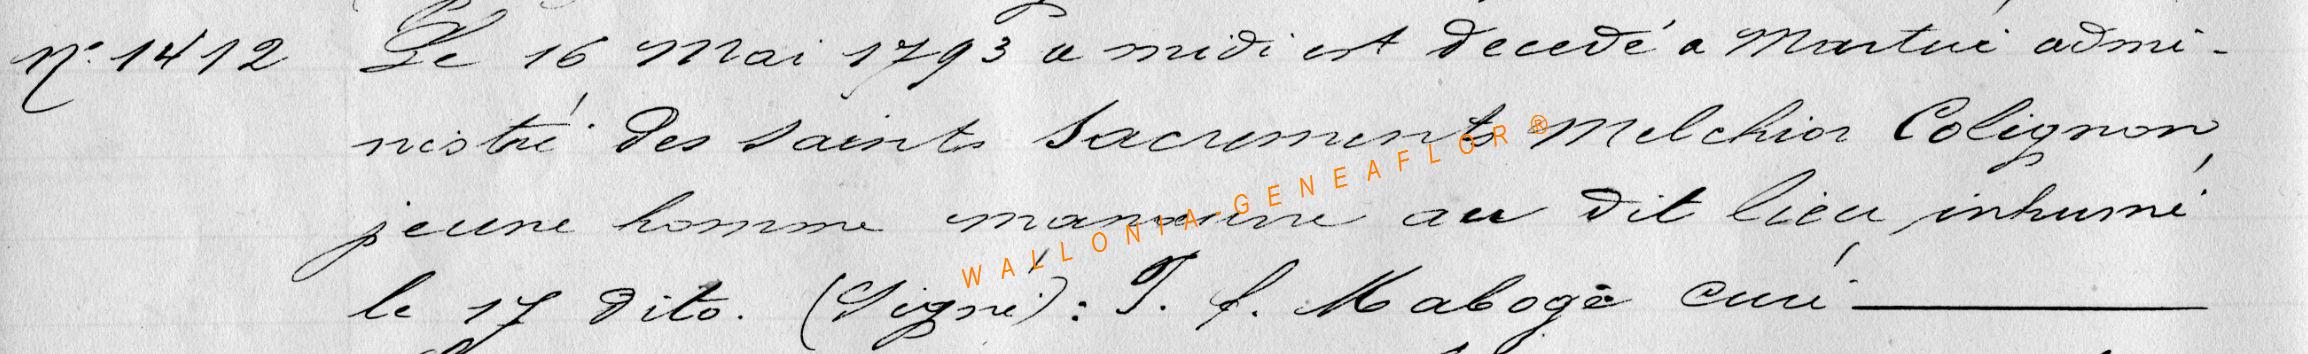 N° 1412 Le 16 Mai 1793 a midi est decedé a Martué admi-
nistré des saints Sacrements Melchior Colignon,
jeune homme au dit lieu, inhumé
le 17 dito. (Signé): T. f. Mabogè curé
WALLONIA-GENEAFLOR®